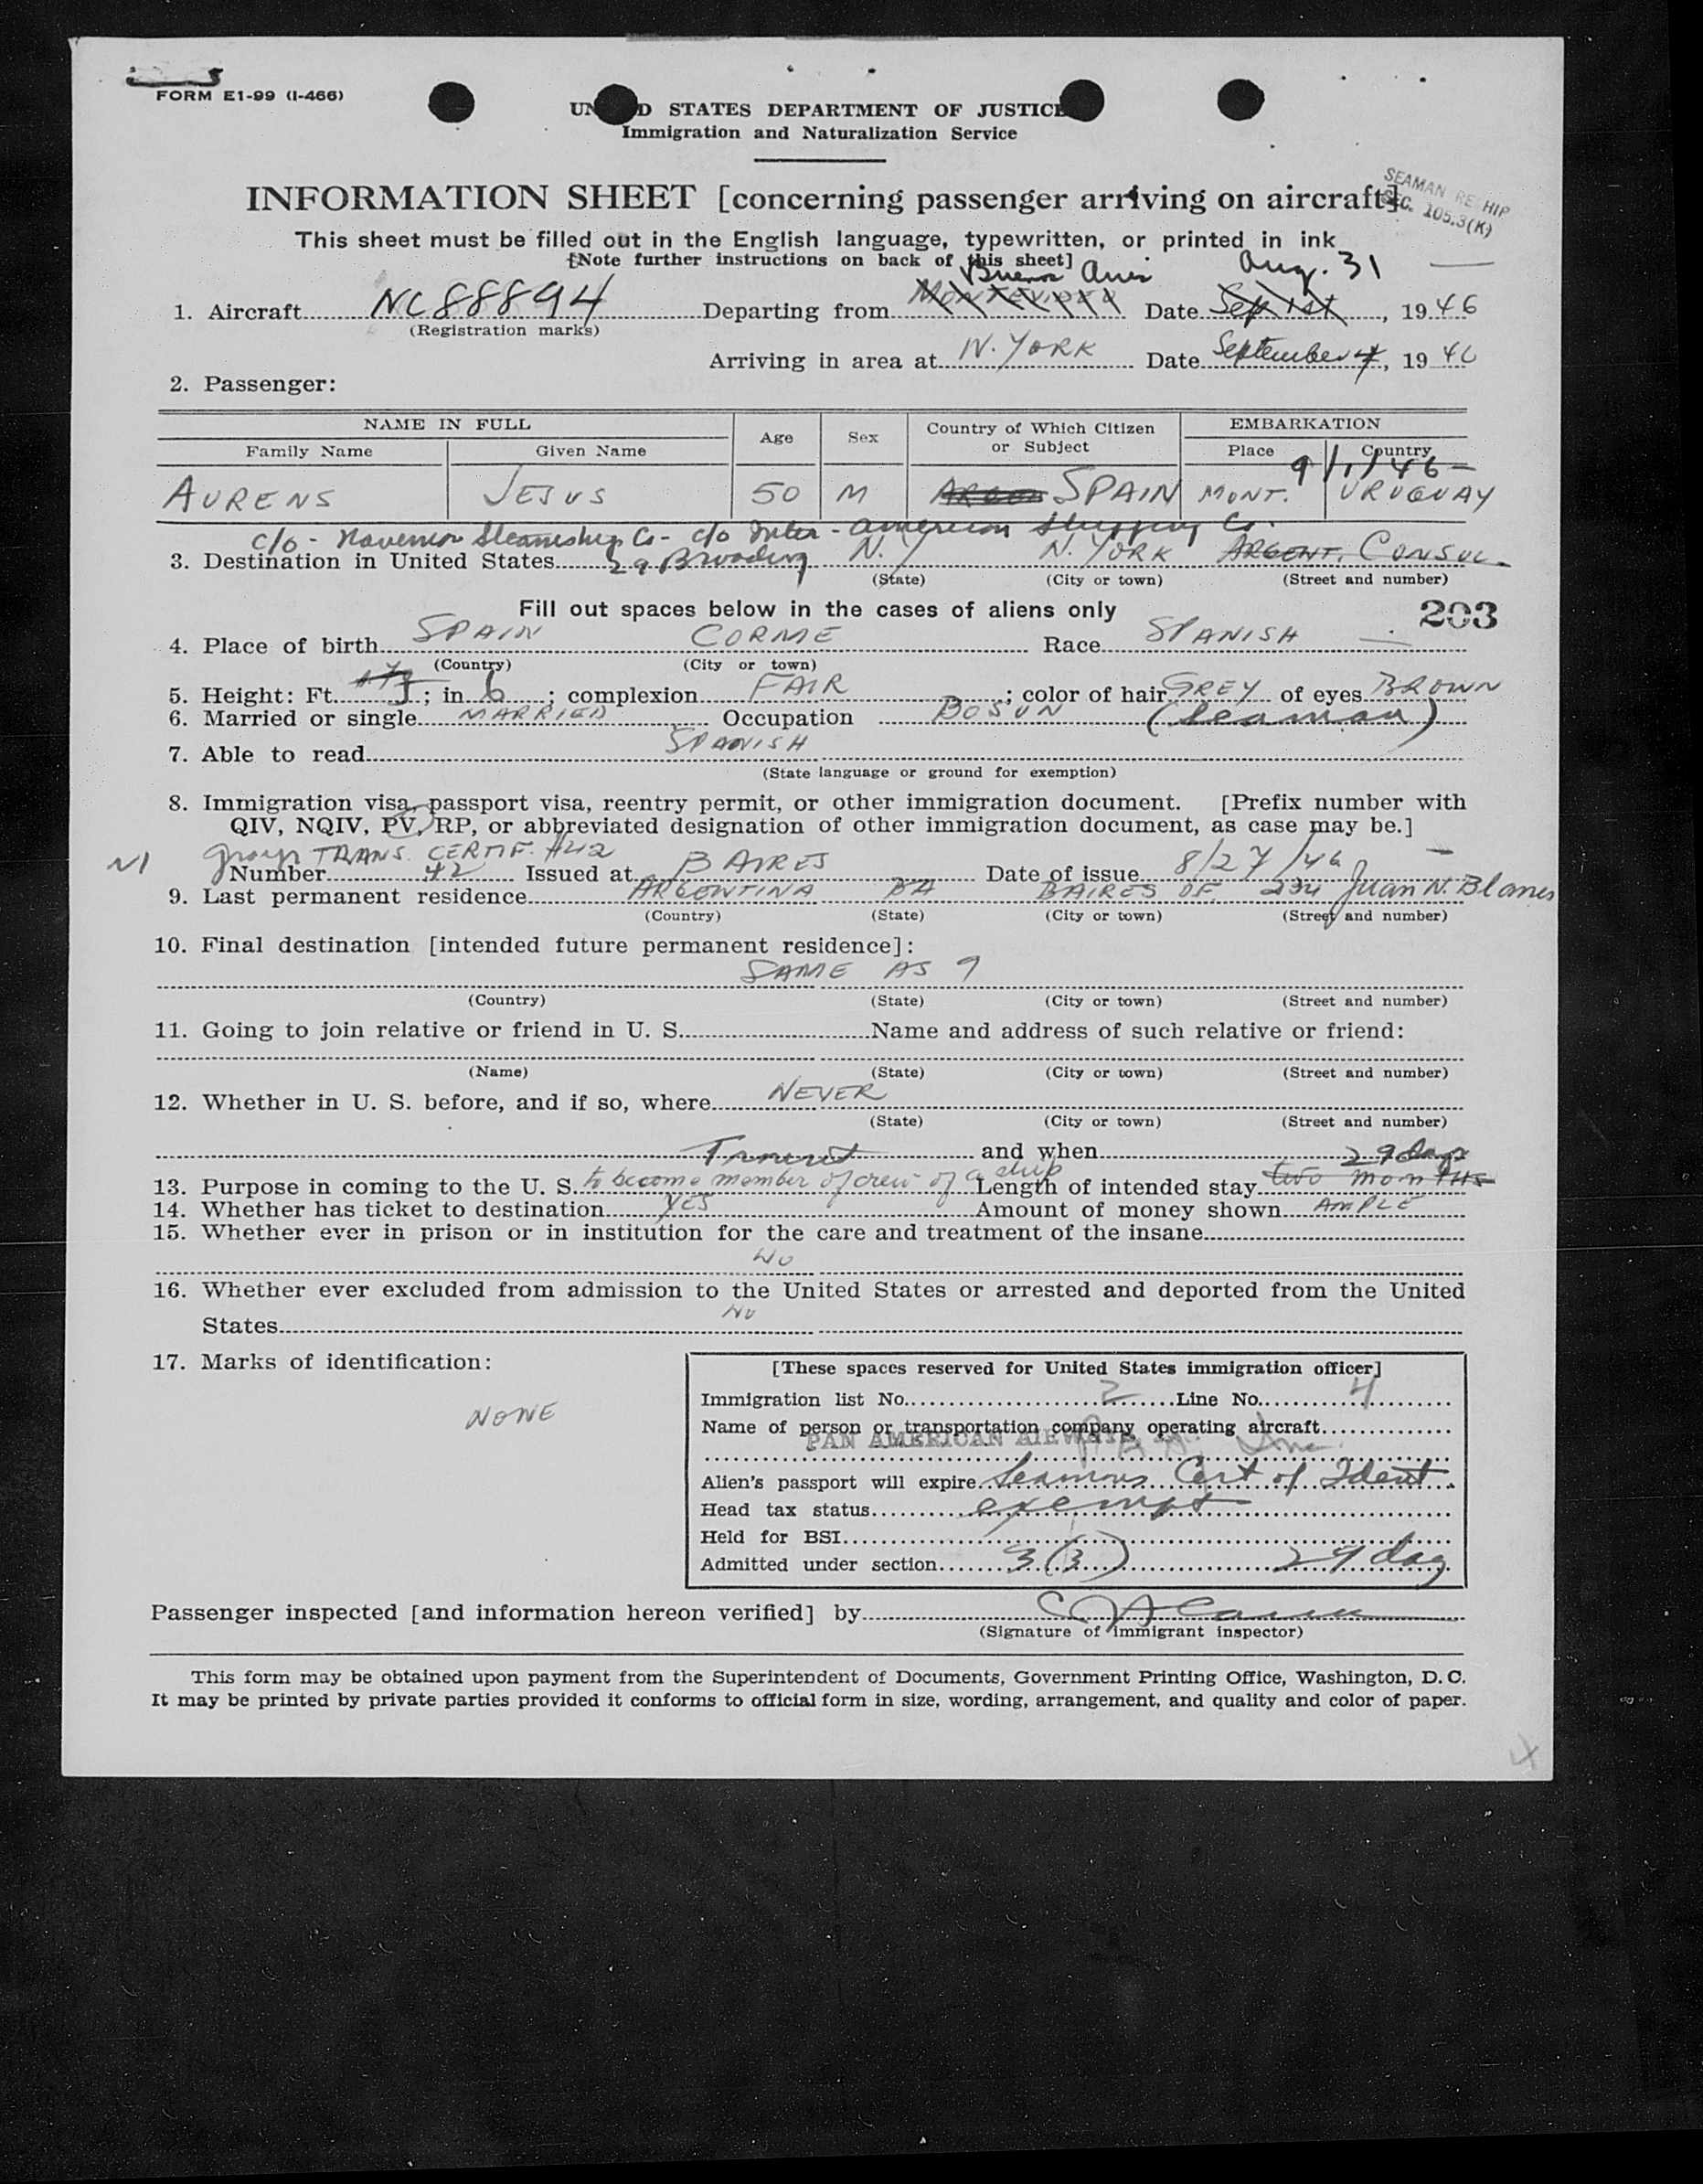 FORM E1-99 (I-466)
UN D STATES DEPARTMENT OF JUSTICE
Immigration and Naturalization Service
INFORMATION SHEET [concerning passenger arriving on aircraft]
SEAMAN RE HIP
SEC. 105.3(K)
This sheet must be filled out in the English language, typewritten, or printed in ink
[Note further instructions on back of this sheet]
Buenos Aires Aug. 31
1. Aircraft NC88894 Departing from MONTEVIDEO Date Sep 1st, 1946
(Registration marks)
Arriving in area at N. YORK Date September 4, 1946
2. Passenger:
NAME IN FULL Age Sex Country of Which Citizen or Subject EMBARKATION
Family Name Given Name Place Country
9/1/46
AURENS JESUS 50 M ARGEN SPAIN MONT. URUGUAY
c/o - Steamship Co - c/o Inter - American Shipping Co.
3. Destination in United States 29 Broadway N.Y N. YORK ARGENT. CONSUL.
(State) (City or town) (Street and number)
Fill out spaces below in the cases of aliens only 203
4. Place of birth SPAIN CORME Race SPANISH
(Country) (City or town)
5. Height: Ft. 5; in 6; complexion FAIR; color of hair GREY of eyes BROWN
6. Married or single MARRIED Occupation BOSUN (Seaman)
7. Able to read SPANISH
(State language or ground for exemption)
8. Immigration visa, passport visa, reentry permit, or other immigration document. [Prefix number with
QIV, NQIV, PV, RP, or abbreviated designation of other immigration document, as case may be.]
NI Group TRANS. CERTIF. #42
Number 42 Issued at B AIRES Date of issue 8/27/46
9. Last permanent residence ARGENTINA BA BAIRES DF. 234 Juan N. Blanes
(Country) (State) (City or town) (Street and number)
10. Final destination [intended future permanent residence]:
SAME AS 9
(Country) (State) (City or town) (Street and number)
11. Going to join relative or friend in U. S. Name and address of such relative or friend:
(Name) (State) (City or town) (Street and number)
12. Whether in U. S. before, and if so, where NEVER
(State) (City or town) (Street and number)
Transit and when 29 days
13. Purpose in coming to the U. S. to become member of crew of a ship Length of intended stay two MONTHS
14. Whether has ticket to destination YES Amount of money shown AMPLE
15. Whether ever in prison or in institution for the care and treatment of the insane
NO
16. Whether ever excluded from admission to the United States or arrested and deported from the United
States NO
17. Marks of identification:
NONE
[These spaces reserved for United States immigration officer]
Immigration list No. 2 Line No. 4
Name of person or transportation company operating aircraft
PAN AMERICAN AIRWAYS, Inc.
Alien's passport will expire Seamans Cert of Ident
Head tax status exempt
Held for BSI
Admitted under section 3(3) 29 day
Passenger inspected [and information hereon verified] by
(Signature of immigrant inspector)
This form may be obtained upon payment from the Superintendent of Documents, Government Printing Office, Washington, D. C.
It may be printed by private parties provided it conforms to official form in size, wording, arrangement, and quality and color of paper.